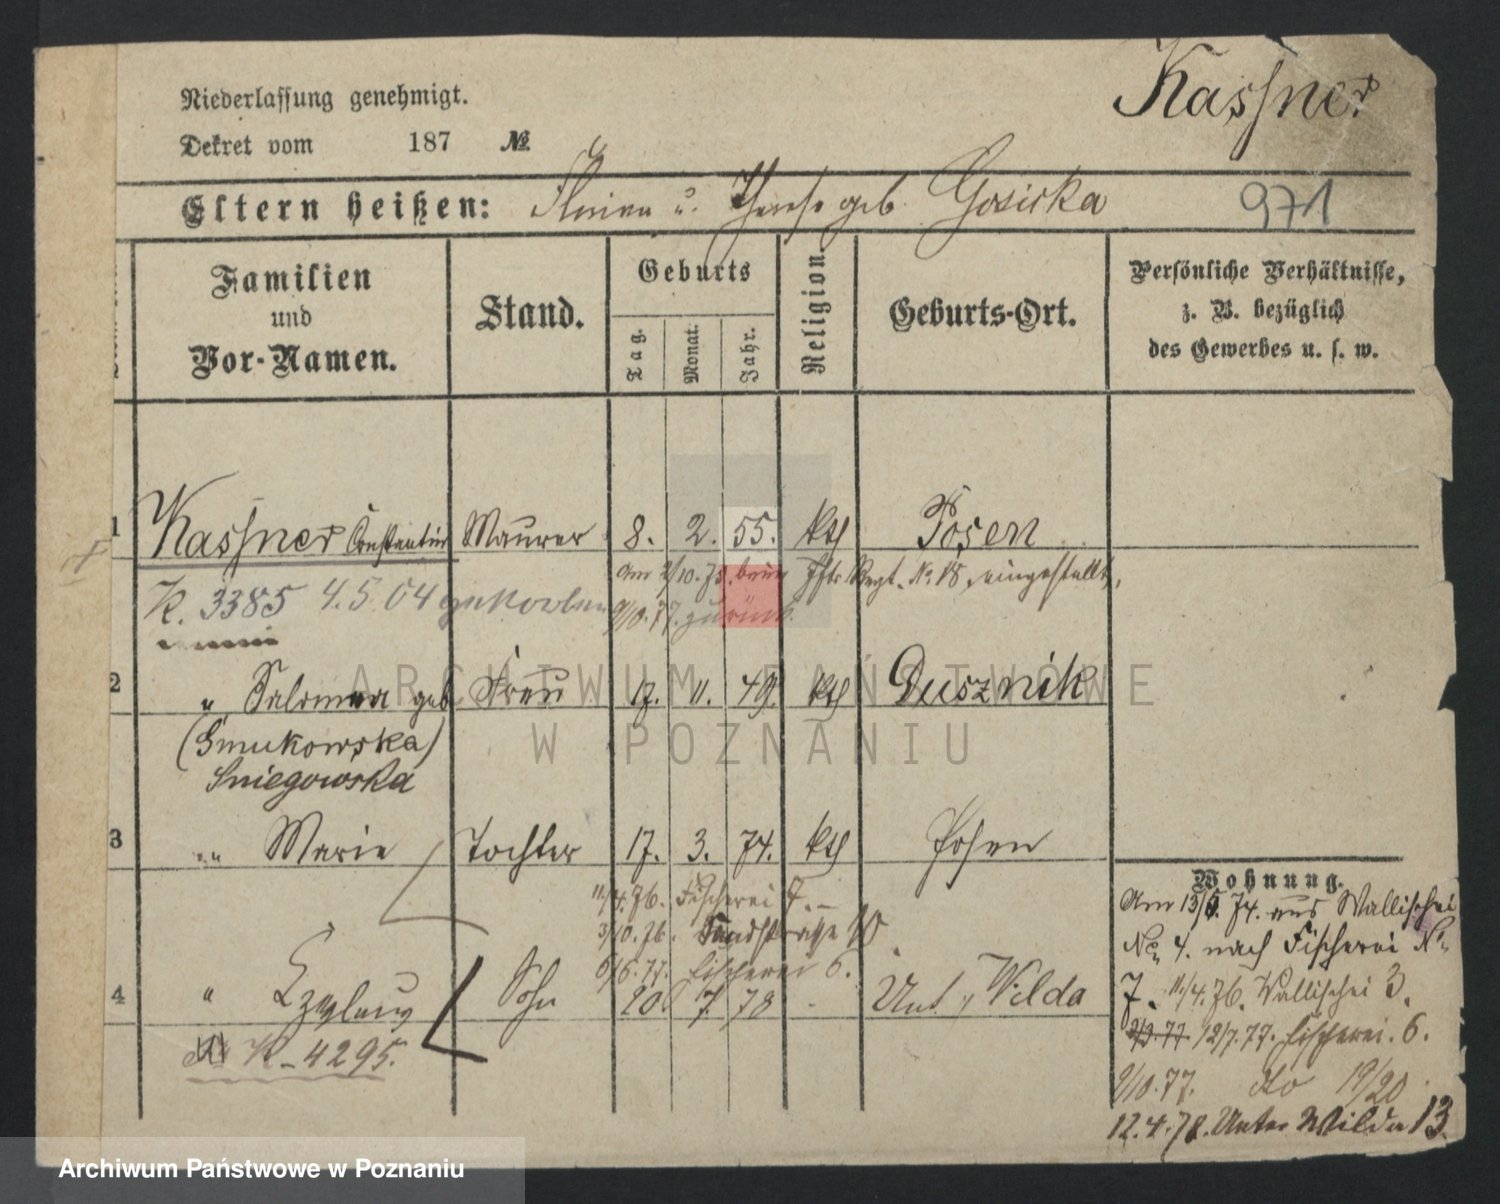 Kassner
Niederlassung genehmigt.
Dekret vom 187 №
Eltern heißen: u. Therese geb. Gosicka
971
Familien
und
Vor-Namen.
Stand.
Geburts
Tag.
Monat.
Jahr.
Religion.
Geburts-Ort.
Persönliche Verhältnisse,
z. B. bezüglich
des Gewerbes u. s. w.
1 Kassner Constantin Maurer 8. 2. 55. kth Posen
Am 2/10. 75. beim Regt. No 18, eingestellt,
K. 3385 4.5.04 9/10. 77. zurück.
2 " Salomea geb. Frau 17. 11. 49. kth Dusznik
(Smukowska)
Sniegowska
3 " Marie Tochter 17. 3. 74. kth Posen
11/4. 76. Fischerei 7.
3/10. 76. Sandstrasse 10
6/6. 77. Fischerei 6.
4 " Sohn 20 7. 78 - Unt. Wilda
K-4295.
Wohnung.
Am 13/5. 74. aus Wallischei
No 4. nach Fischerei No
7. 11/4. 76. Wallischei 3.
12/7. 77. Fischerei. 6.
9/10. 77. dto 19/20
12.4.78. Unter Wilda 13.
ARCHIWUM PAŃSTWOWE
W POZNANIU
Archiwum Państwowe w Poznaniu